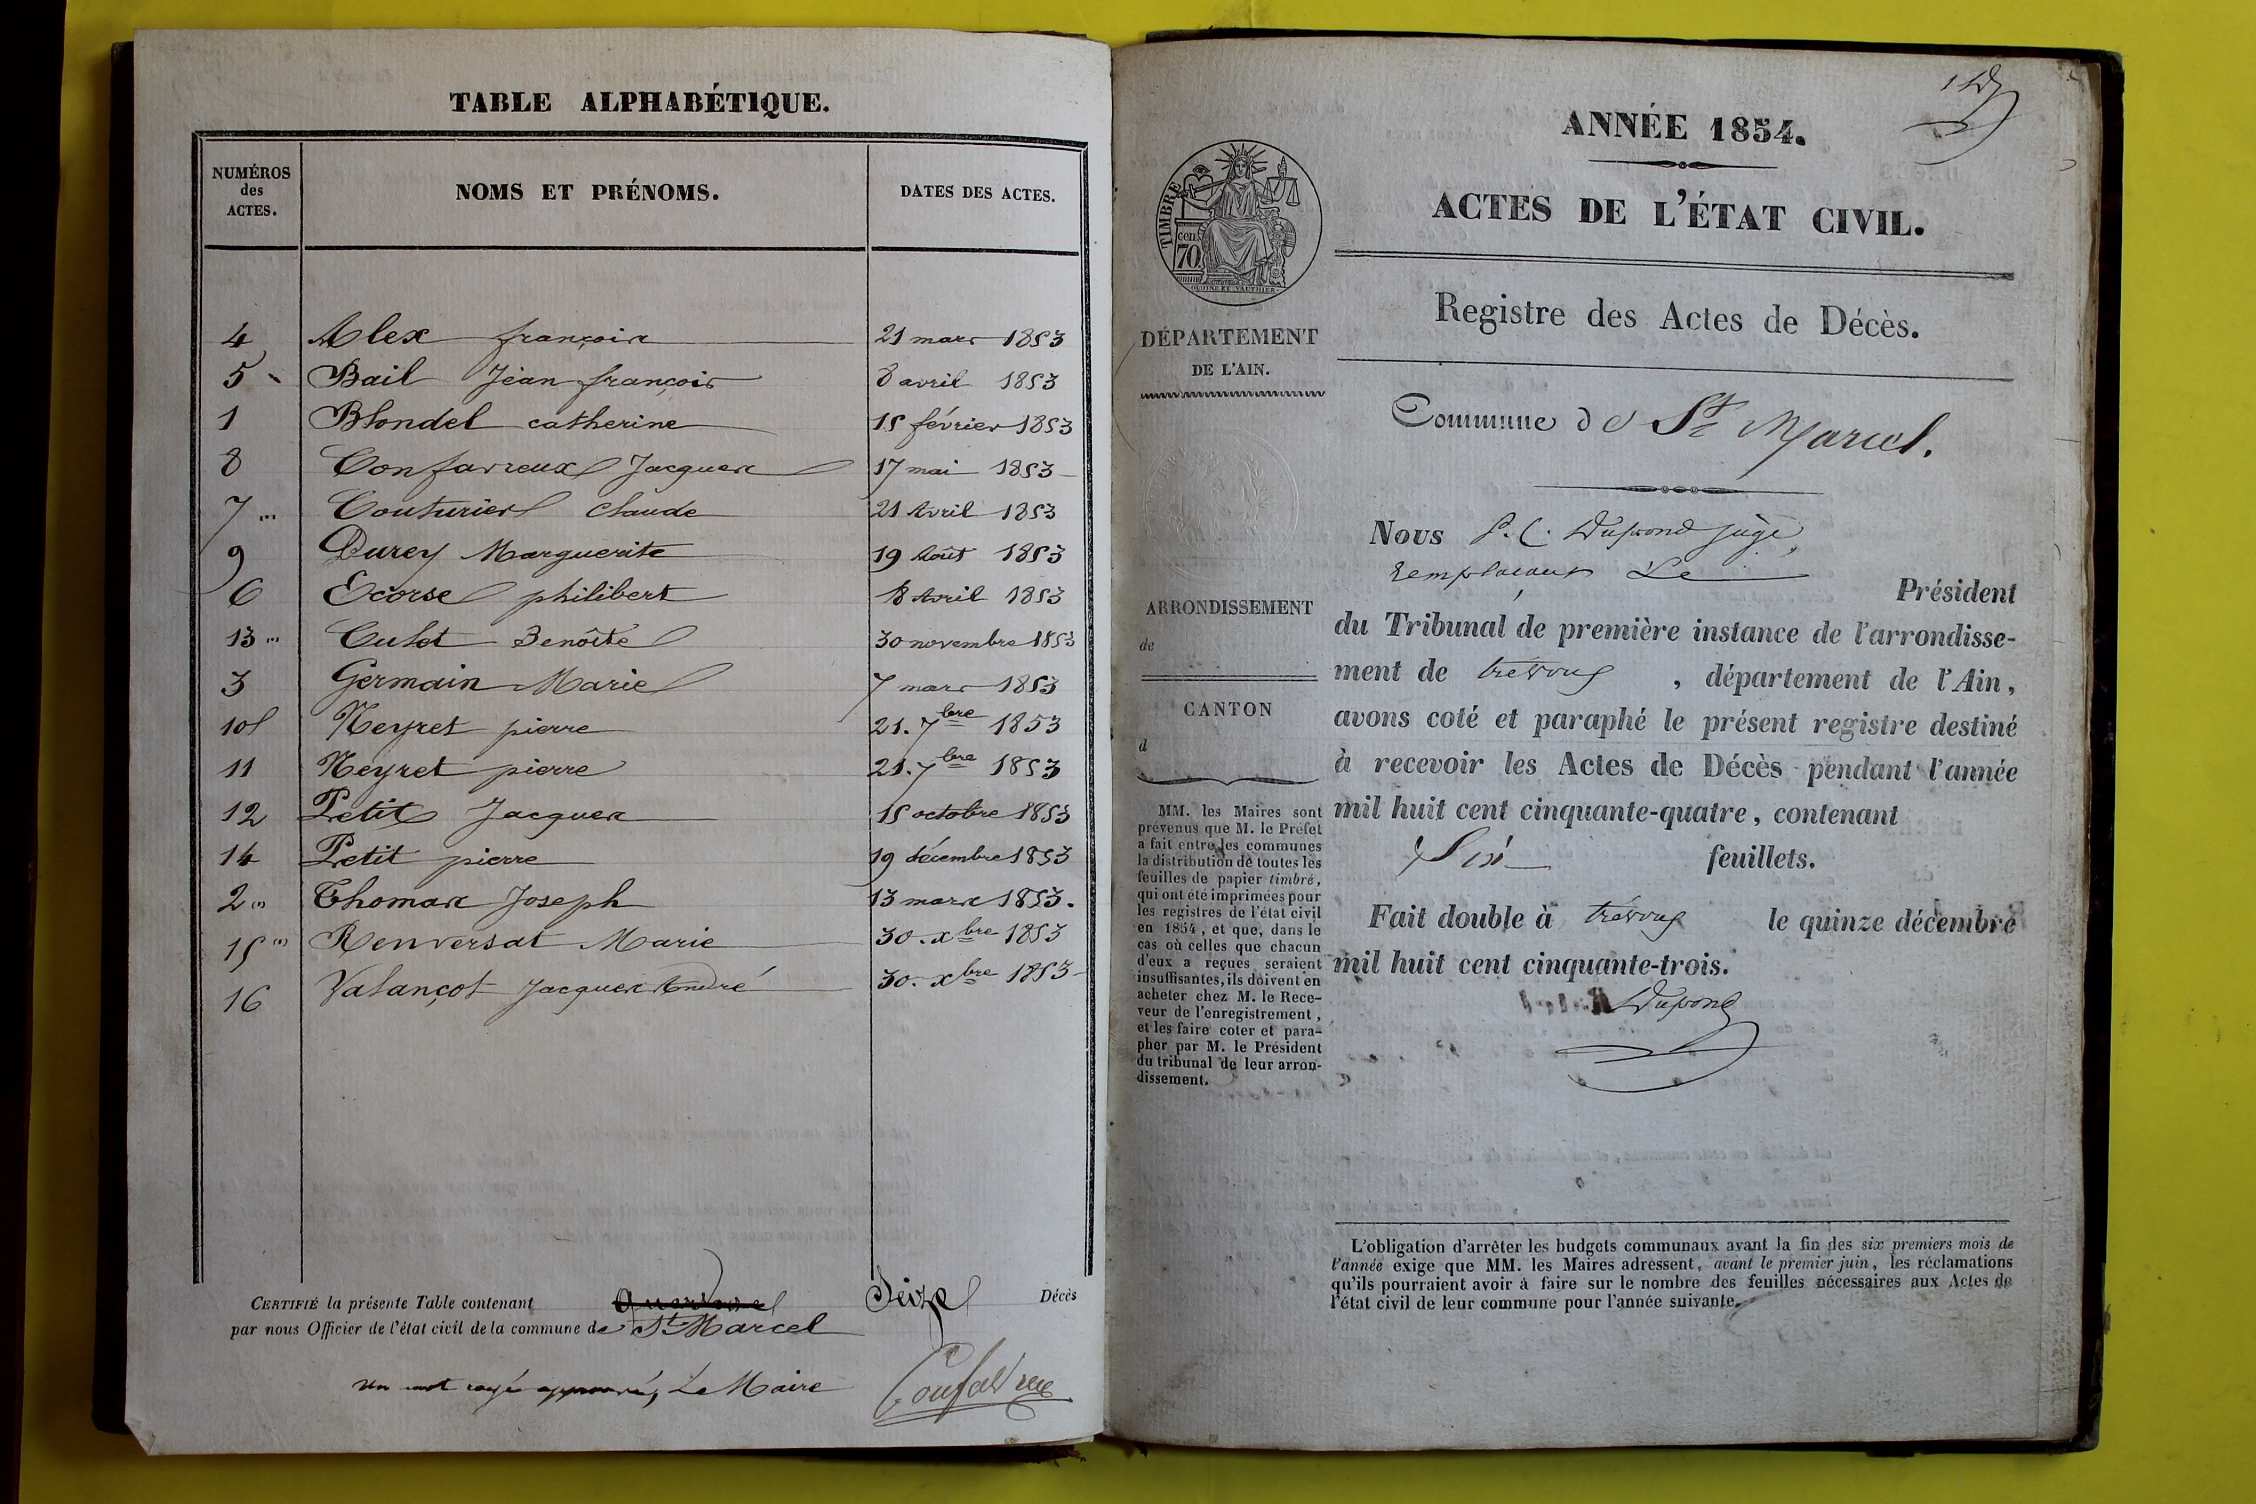 TABLE ALPHABÉTIQUE.
NUMÉROS des ACTES. NOMS ET PRÉNOMS. DATES DES ACTES.
4 Alex françois 21 mars 1853
5 Bail Jéan françois 8 avril 1853
1 Blondel catherine 15 février 1853
8 Confavreux Jacques 17 mai 1853
7 Couturier Claude 21 Avril 1853
9 Durey Marguerite 19 Août 1853
6 Ecorse philibert 8 Avril 1853
13 Culet Benoîte 30 novembre 1853
3 Germain Marie 7 mars 1853
10 Neyret pierre 21. 7bre 1853
11 Neyret pierre 21. 7bre 1853
12 Petit Jacques 15 octobre 1853
14 Petit pierre 19 décembre 1853
2 Thomas Joseph 13 mars 1853.
15 Renversat Marie 30. xbre 1853
16 Valançot Jacques André 30. xbre 1853
CERTIFIÉ la présente Table contenant Seize Décès
par nous Officier de l'état civil de la commune de St Marcel
un mot rayé approuvé, Le Maire
ANNÉE 1854.
ACTES DE L'ÉTAT CIVIL.
TIMBRE
cen. 70
Registre des Actes de Décès.
DÉPARTEMENT
DE L'AIN.
Commune de St Marcel.
ARRONDISSEMENT
de
CANTON
d
MM. les Maires sont
prévenus que M. le Préfet
a fait entre les communes
la distribution de toutes les
feuilles de papier timbré,
qui ont été imprimées pour
les registres de l'état civil
en 1854, et que, dans le
cas où celles que chacun
d'eux a reçues seraient
insuffisantes, ils doivent en
acheter chez M. le Rece-
veur de l'enregistrement,
et les faire coter et para-
pher par M. le Président
du tribunal de leur arron-
dissement.
Nous P. C. Dupond juge,
remplaçant Le Président
du Tribunal de première instance de l'arrondisse-
ment de trévoux, département de l'Ain,
avons coté et paraphé le présent registre destiné
à recevoir les Actes de Décès pendant l'année
mil huit cent cinquante-quatre, contenant
Six feuillets.
Fait double à trévoux le quinze décembre
mil huit cent cinquante-trois.
Dupond
L'obligation d'arrêter les budgets communaux avant la fin des six premiers mois de
l'année exige que MM. les Maires adressent, avant le premier juin, les réclamations
qu'ils pourraient avoir à faire sur le nombre des feuilles nécessaires aux Actes de
l'état civil de leur commune pour l'année suivante.